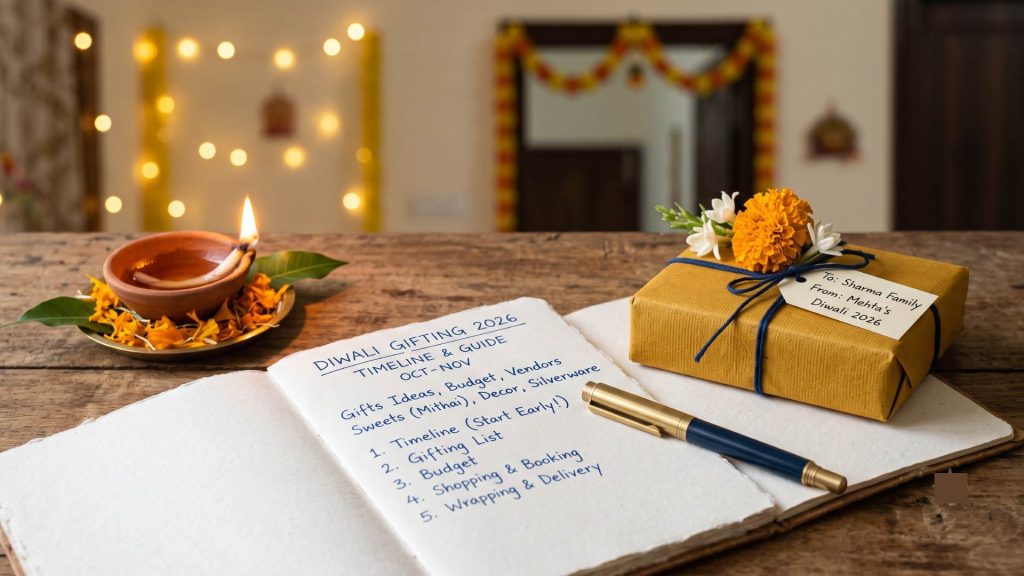 DIWALI GIFTING 2026
TIMELINE & GUIDE
OCT-NOV
Gifts Ideas, Budget, Vendors
Sweets (Mithai), Decor, Silverware
1. Timeline (Start Early!)
2. Gifting List
3. Budget
4. Shopping & Booking
5. Wrapping & Delivery
To: Sharma Family
From: Mehta's
Diwali 2026